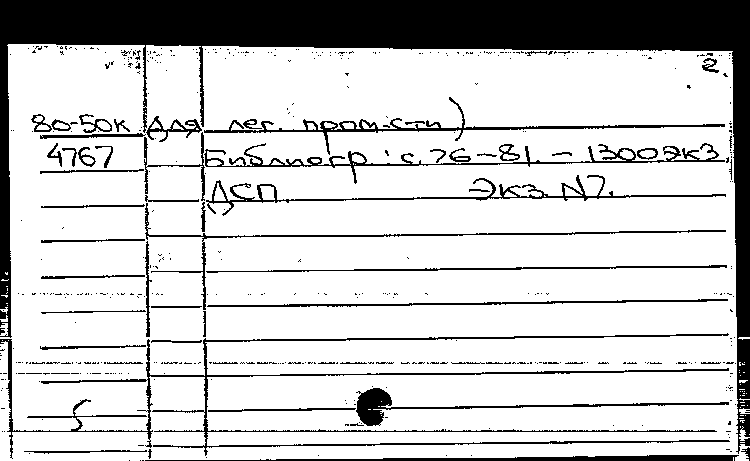 2.
80-50к для лег. пром-сти)
4767 Библиогр.: с. 76-81. - 1300экз.
ДСП Экз. N7.